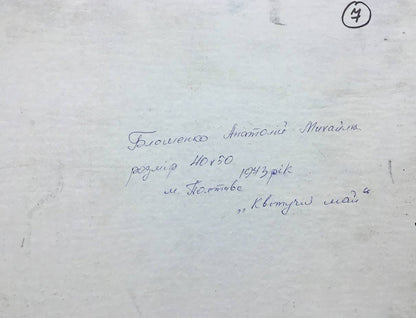 7
Бломенко Анатолій Михайл
розмір 40х50
1943 рік
м. Полтава
„Квітучий май"